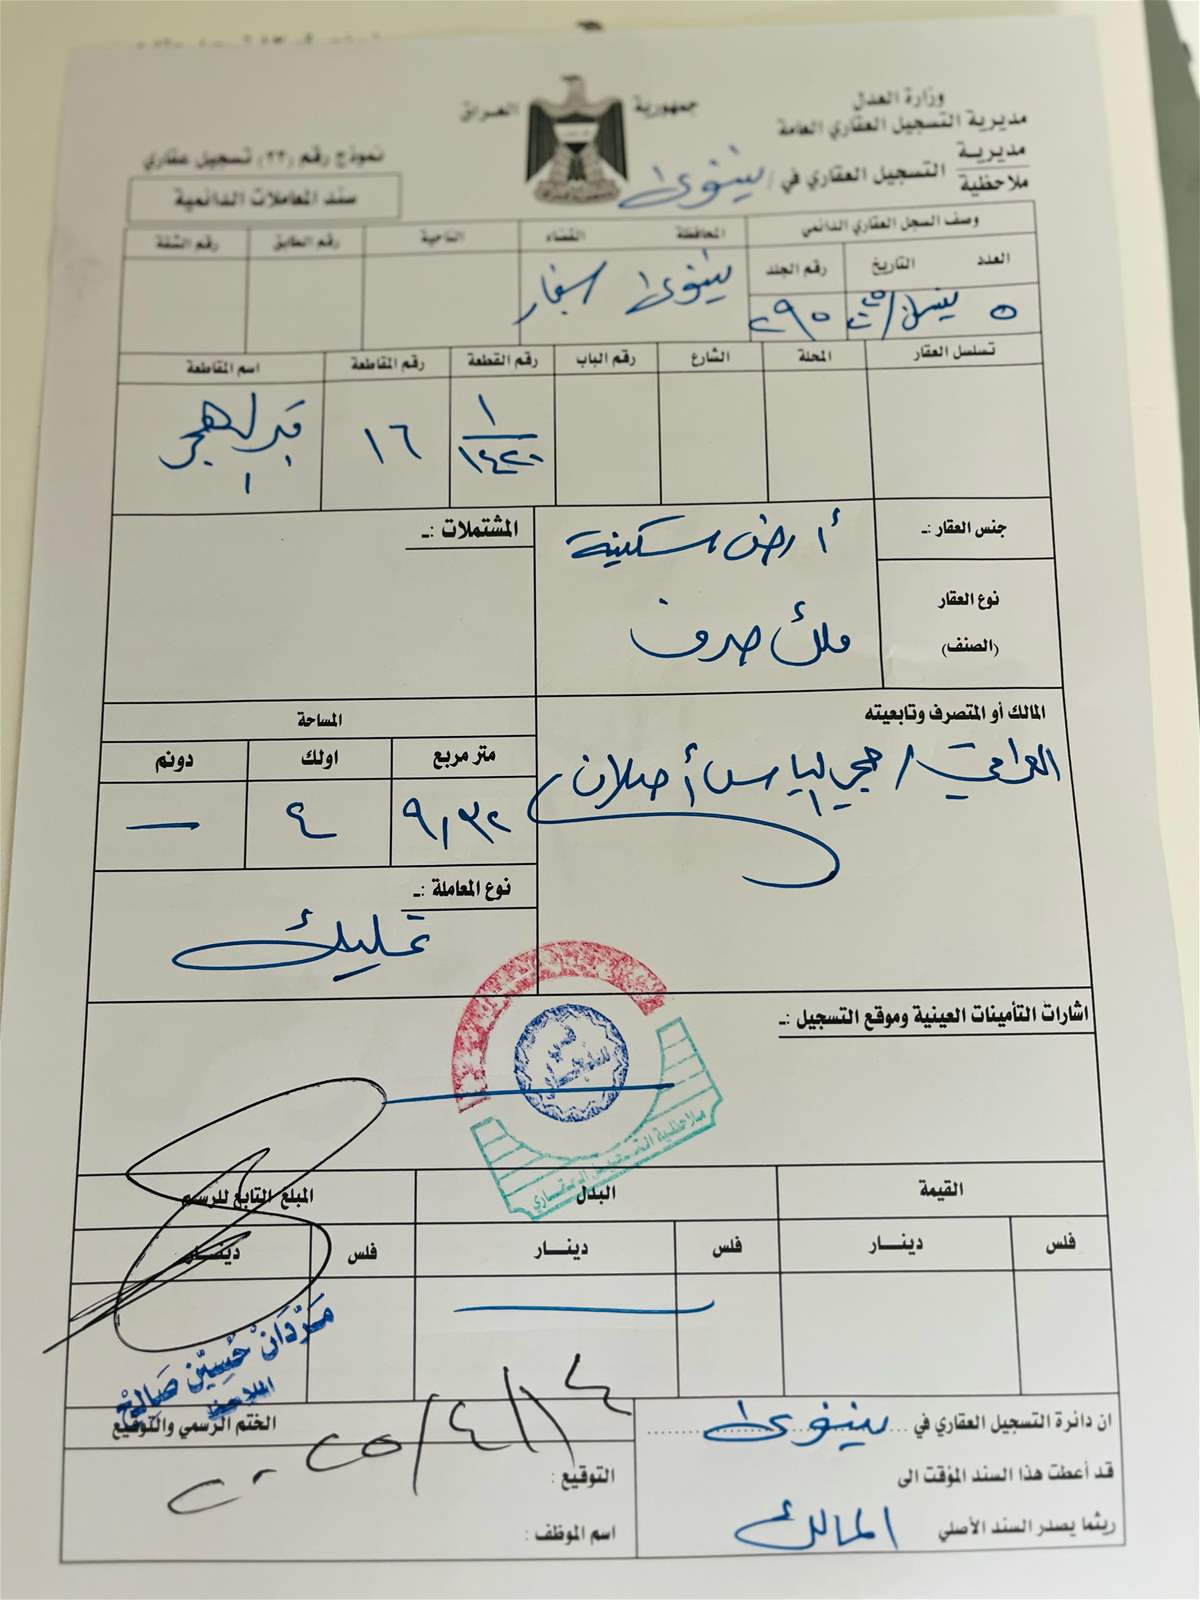 جمهورية العراق
وزارة العدل
مديرية التسجيل العقاري العامة
مديرية
ملاحظية
التسجيل العقاري في / نينوى
نموذج رقم (٢٣) تسجيل عقاري
سند المعاملات الدائمية
وصف السجل العقاري الدائمي
المحافظة القضاء الناحية رقم الطابق رقم الشقة
العدد التاريخ رقم الجلد
نينوى سنجار
٥ نيسان/٢٠٢٥ ٢٩٥
تسلسل العقار المحلة الشارع رقم الباب رقم القطعة رقم المقاطعة اسم المقاطعة
١
١٤٢٠ ١٦
جنس العقار :ـ أرض سكنية
المشتملات :ـ
نوع العقار
(الصنف)
ملك صرف
المالك أو المتصرف وتابعيته
العراقي / حجي الياس أصلان
المساحة
متر مربع اولك دونم
٩,٣٢ ٤ —
نوع المعاملة :ـ
تمليك
اشارات التأمينات العينية وموقع التسجيل :ـ
ملاحظية التسجيل العقاري
القيمة البدل المبلغ التابع للرسم
فلس دينـــار فلس دينـــار فلس دينـــار
مردان حسين صالح
الملاحظ
الختم الرسمي والتوقيع
٢٠٢٥/٤/١٤
التوقيع :
اسم الموظف :
ان دائرة التسجيل العقاري في نينوى
قد أعطت هذا السند المؤقت الى
ريثما يصدر السند الأصلي المالك